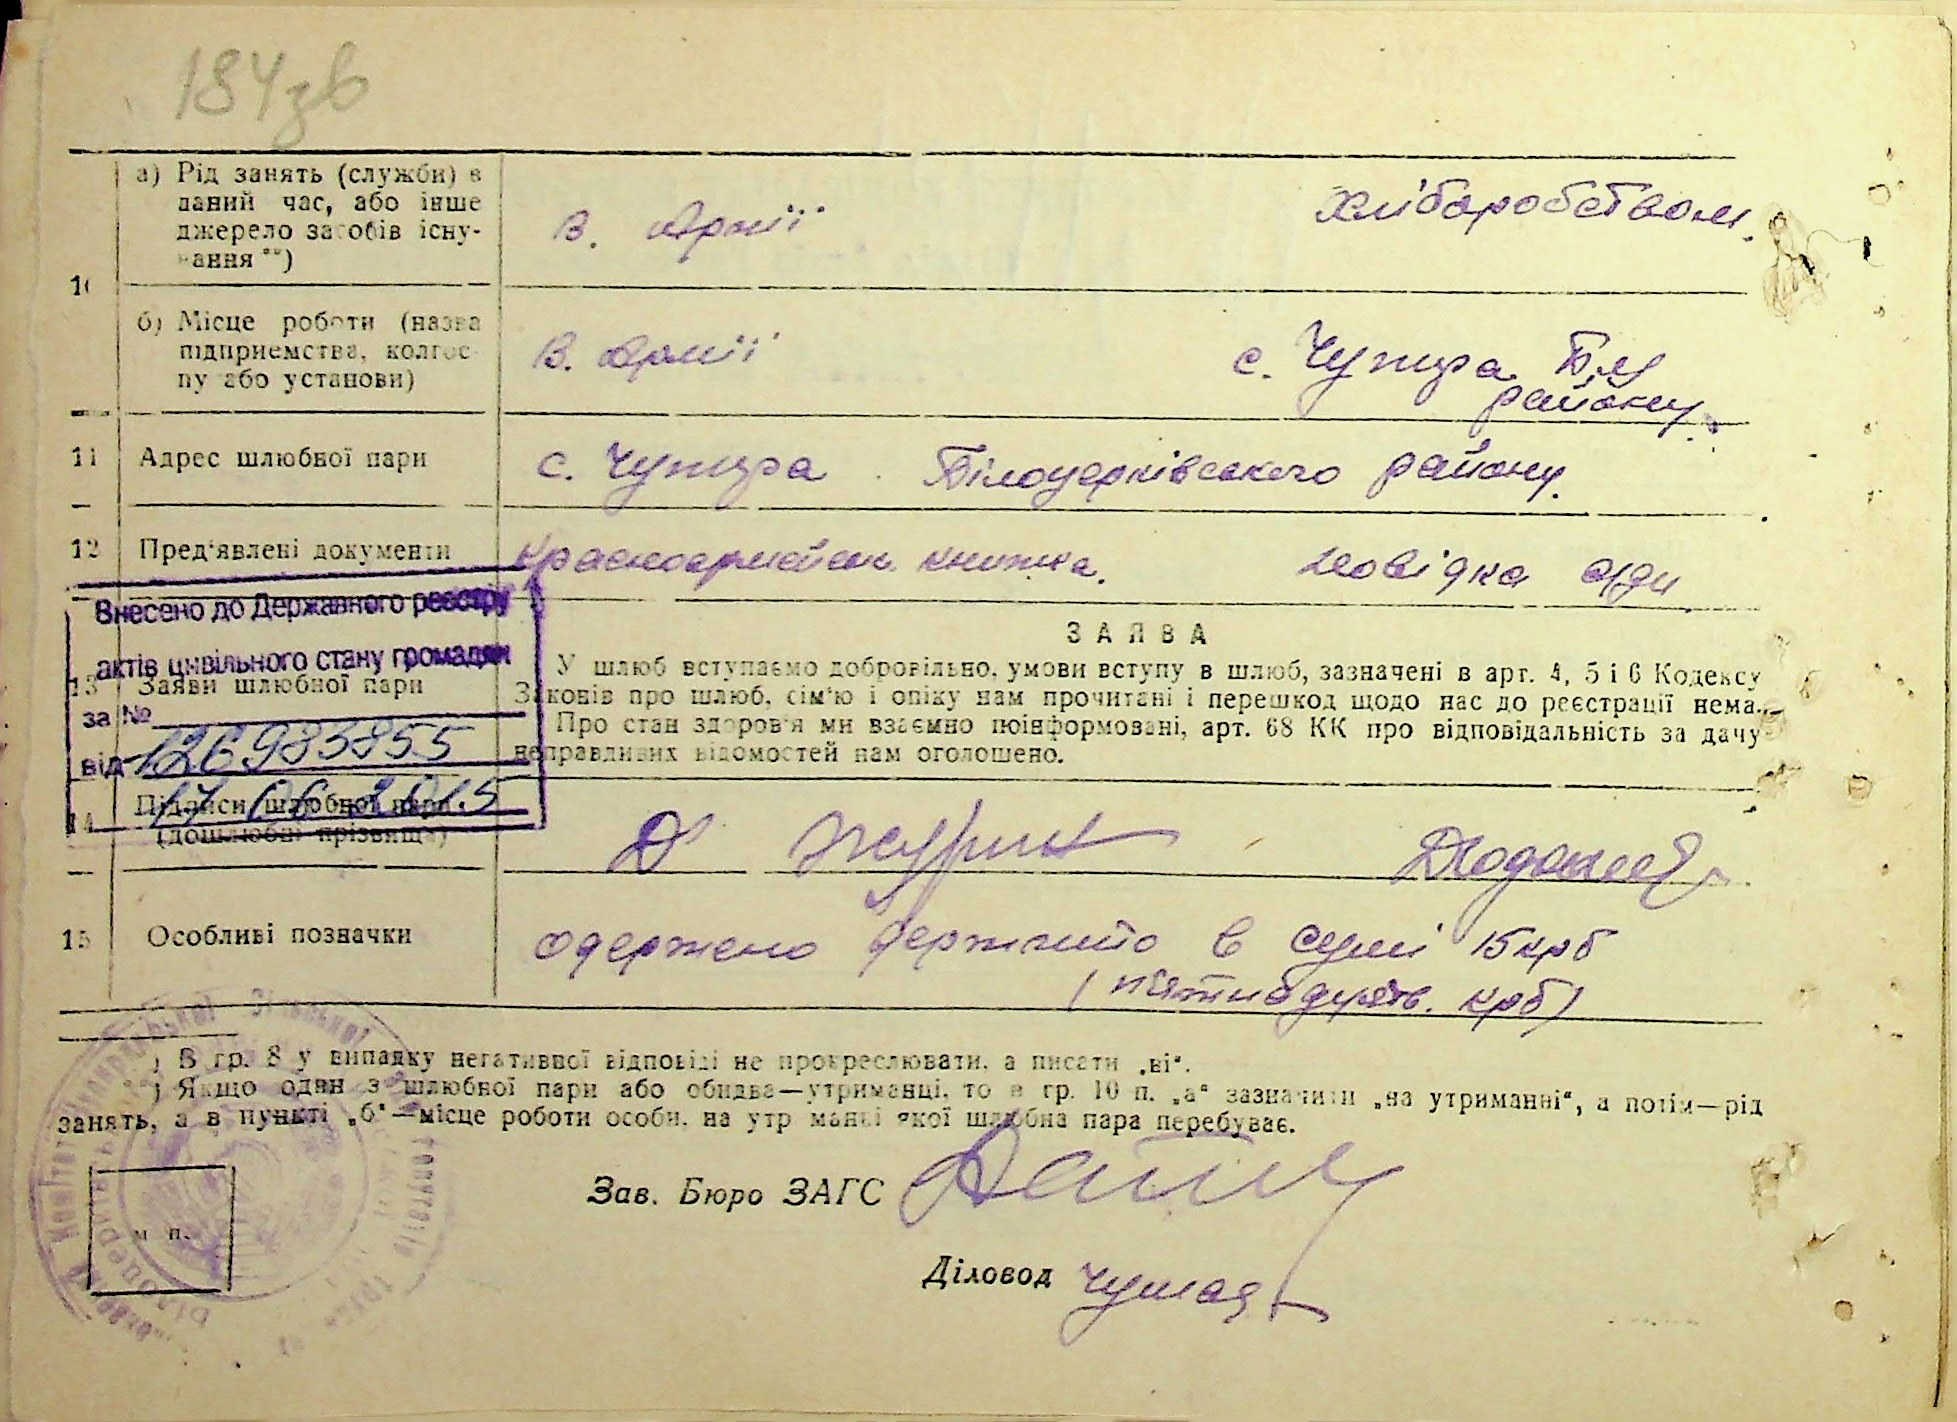 184зв
а) Рід занять (служби) в
даний час, або інше
джерело засобів існу-
вання **)
В. Армії
Хліборобством.
10
б) Місце роботи (назва
підприємства, колгос-
пу або установи)
В. Армії
с. Чупира Б.Ц
району.
11 Адрес шлюбної пари
с. Чупира Білоцерківського району.
12 Пред'явлені документи
Красноармейск. книжка.
довідка с/ди
Внесено до Державного реєстру
актів цивільного стану громадян
за №
126983855
від 17 06 2015
13 Заяви шлюбної пари
ЗАЯВА
У шлюб вступаємо добровільно, умови вступу в шлюб, зазначені в арт. 4, 5 і 6 Кодексу
Законів про шлюб, сім'ю і опіку нам прочитані і перешкод щодо нас до реєстрації нема.
Про стан здоров'я ми взаємно поінформовані, арт. 68 КК про відповідальність за дачу
неправдивих відомостей нам оголошено.
14 Підписи шлюбної пари
(дошлюбні прізвища)
15 Особливі позначки
одержено держмито в сумі 15 крб
(п'ятнадцять. крб)
*) В гр. 8 у випадку негативної відповіді не прокреслювати, а писати „ні“.
**) Якщо один з шлюбної пари або обидва—утриманці, то в гр. 10 п. „а“ зазначити „на утриманні“, а потім—рід
занять, а в пункті „б“—місце роботи особи, на утриманні якої шлюбна пара перебуває.
Зав. Бюро ЗАГС
м п.
Діловод